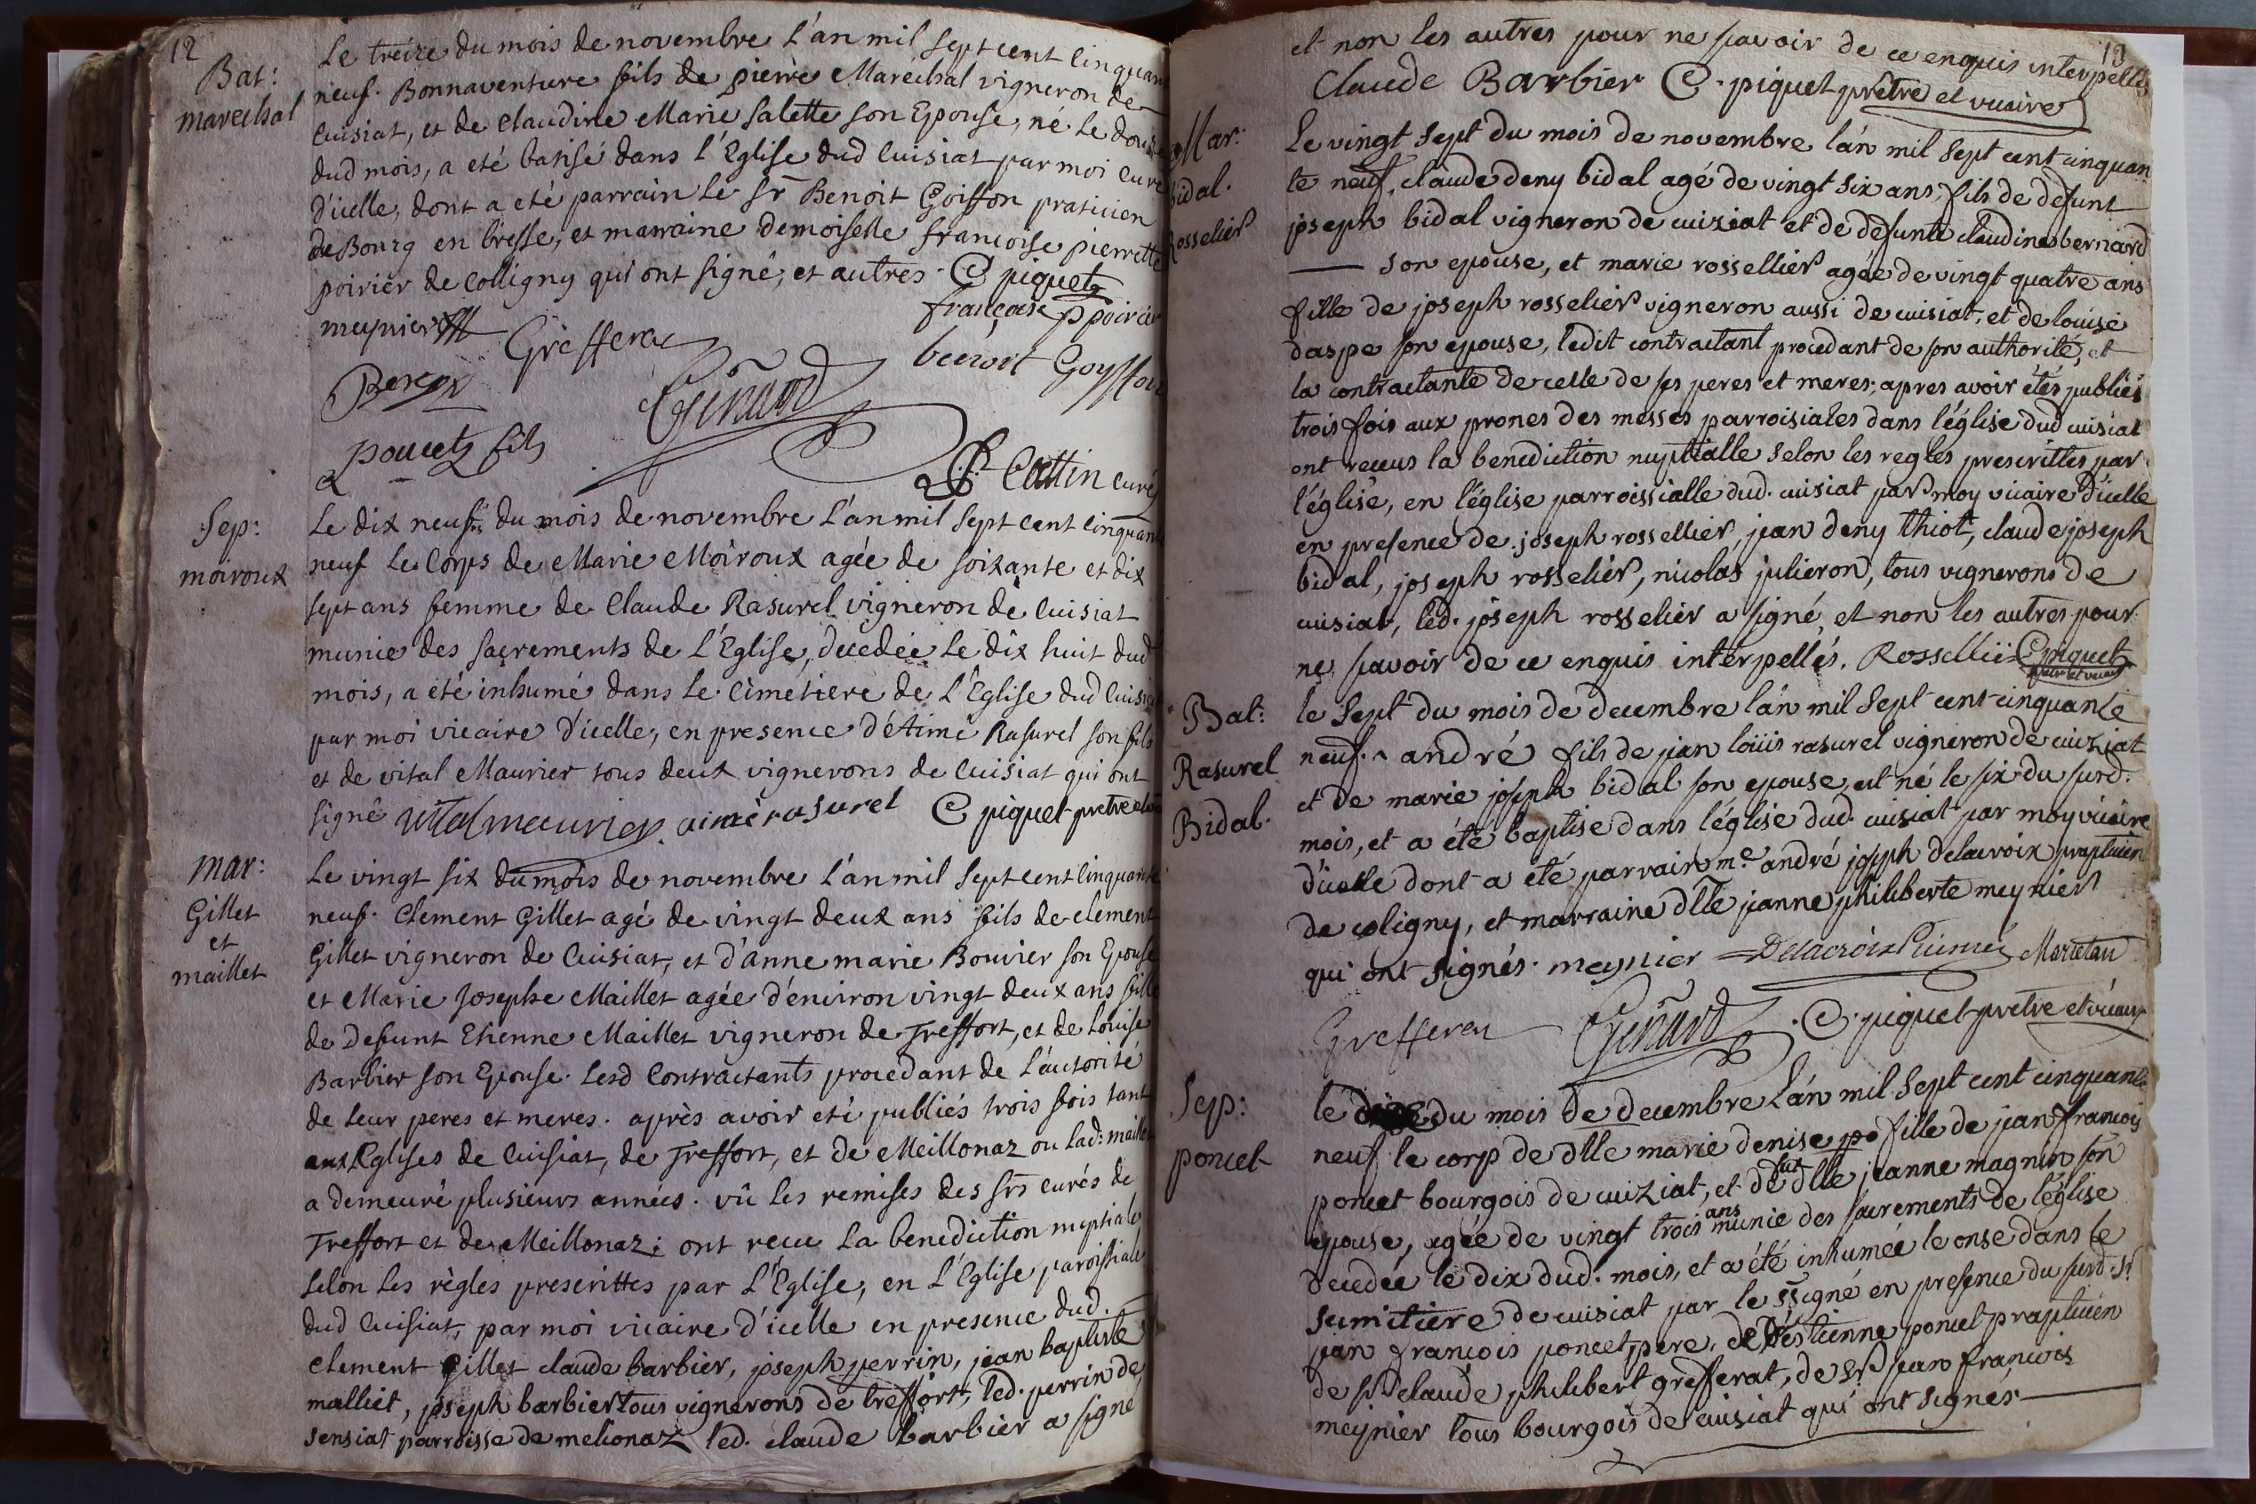 12
Bat:
marechal
Le treize du mois de novembre L'an mil sept cent cinquan
neuf. Bonnaventure fils de pierre Maréchal vigneron de
Cuisiat, et de Claudine Marie Salette son Epouse, né Le douze
dud mois, a eté batisé dans l'Eglise dud Cuisiat par moi curé
d'icelle, dont a eté parrain Le Sr Benoit Goiffon praticien
de Bourg en bresse, et marraine demoiselle francoise pierrette
poirier de Colligny qui ont signé, et autres. C piquet
francoise p poirier
meynier Grefferat
benoit Goyffon
Genard
poncet fils
Cattin curé
Sep:
moiroux
Le dix neuf du mois de novembre L'an mil sept cent cinquante
neuf Le Corps de Marie Moiroux agée de soixante et dix
sept ans femme de Claude Rasurel vigneron de Cuisiat
munie des sacrements de L'Eglise, decedée Le dix huit dud
mois, a été inhumé dans Le Cimetiere de L'Eglise dud Cuisiat
par moi vicaire d'icelle, en presence d'Etimé Rasurel son fils
et de vital Maurier tous deux vignerons de Cuisiat qui ont
signé vital maurier aimé rasurel C piquet pretre
Mar:
Gillet
et
maillet
Le vingt six du mois de novembre L'an mil sept cent cinquante
neuf. Clement Gillet agé de vingt deux ans fils de clement
Gillet vigneron de Cuisiat, et d'anne marie Bouvier son Epouse
et Marie Josephe Maillet agée d'environ vingt deux ans fille
de Defunt Etienne Maillet vigneron de Treffort, et de Louise
Barbier son Epouse. Lesd Contractants procedant de L'autorité
de Leur peres et meres. après avoir eté publiés trois fois tant
aux Eglises de Cuisiat, de Treffort, et de Meillonaz ou Lad: maillet
a demeuré plusieurs années. vû les remises des srs curés de
Treffort et de Meillonaz; ont recu La benediction nuptiale
selon Les règles prescrittes par L'Eglise, en L'Eglise paroissiale
dud Cuisiat, par moi vicaire d'icelle en presence dud.
Clement Gillet claude barbier, joseph perrin, jean baptiste
malliet, joseph barbier tous vignerons de treffort, led. perrin de
sensiat parroisse de melionaz led. claude barbier a signé
13
et non les autres pour ne savoir de ce enquis interpellés
Claude Barbier C. piquet prêtre et vicaire
Mar:
bidal.
Rosselier
Le vingt sept du mois de novembre l'án mil sept cent cinquan
te neuf, claude deny bidal agé de vingt six ans, fils de defunt
joseph bidal vigneron de cuiziat et de defunte claudine bernard
son epouse, et marie rossellier agée de vingt quatre ans
fille de joseph rosselier vigneron aussi de cuisiat, et de louise
daspe son epouse, ledit contractant procedant de son authorité, et
la contractante de celle de ses peres et meres; apres avoir étés publiés
trois fois aux prones des messes parroisiales dans l'église dud cuisiat
ont recus la benediction nuptialle selon les regles prescrittes par
l'église, en l'église parroissialle dud. cuisiat par moy vicaire d'icelle
en presence de joseph rossellier, jean deny thiot, claude joseph
bidal, joseph rosselier, nicolas julieron, tous vignerons de
cuisiat, led. joseph rosselier a signé, et non les autres pour
ne savoir de ce enquis interpellés. Rossellie C piquet
pretre et vicaire
Bat:
Rasurel
Bidal.
le sept du mois de decembre l'án mil sept cent cinquante
neuf. andré fils de jean loüis rasurel vigneron de cuiziat
et de marie joseph bidal son epouse, est né le six du susd.
mois, et a été baptise dans l'église dud. cuisiat par moy vicaire
d'icelle dont a été parrain me. andré joseph delacroix prapticien
de coligny, et marraine dlle jeanne philiberte meynier
qui ont signés. meynier Delacroix Martetan
Grefferat Genard C. piquet pretre et vicaire
Sep:
poncet
le du mois de decembre l'án mil sept cent cinquante
neuf le corp de dlle marie denise po fille de jean francois
poncet bourgois de cuiziat, et de dlle jeanne magnin son
epouse, agée de vingt trois ans munie des sacrements de l'église
decedée le dix dud. mois, et a été inhumée le onse dans le
semitiere de cuisiat par le ssigné en presence du susd. sr.
jean francois poncet pere, de estienne poncet prapticien
de sr claude philibert grefferat, de sr. jean francois
meynier tous bourgois de cuisiat qui ont signés